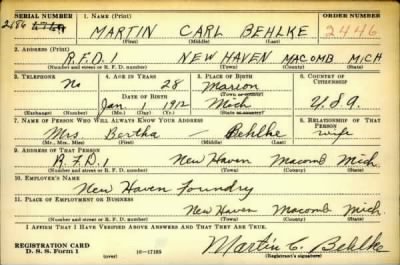 SERIAL NUMBER 1. NAME (Print) ORDER NUMBER
2186 MARTIN CARL BEHLKE 2446
(First) (Middle) (Last)
2. ADDRESS (Print)
R.F.D. 1 NEW HAVEN MACOMB MICH
(Number and street or R. F. D. number) (Town) (County) (State)
3. TELEPHONE 4. AGE IN YEARS 5. PLACE OF BIRTH 6. COUNTRY OF CITIZENSHIP
No 28 Marion
DATE OF BIRTH (Town or county)
Jan 1 1912 Mich U.S.A.
(Exchange) (Number) (Mo.) (Day) (Yr.) (State or country)
7. NAME OF PERSON WHO WILL ALWAYS KNOW YOUR ADDRESS 8. RELATIONSHIP OF THAT PERSON
Mrs. Bertha — Behlke wife
(Mr., Mrs., Miss) (First) (Middle) (Last)
9. ADDRESS OF THAT PERSON
R.F.D. 1 New Haven Macomb Mich.
(Number and street or R. F. D. number) (Town) (County) (State)
10. EMPLOYER'S NAME
New Haven Foundry
11. PLACE OF EMPLOYMENT OR BUSINESS
New Haven Macomb Mich.
(Number and street or R. F. D. number) (Town) (County) (State)
I AFFIRM THAT I HAVE VERIFIED ABOVE ANSWERS AND THAT THEY ARE TRUE.
REGISTRATION CARD
D. S. S. Form 1 (over) 16—17105 Martin C. Behlke
(Registrant's signature)